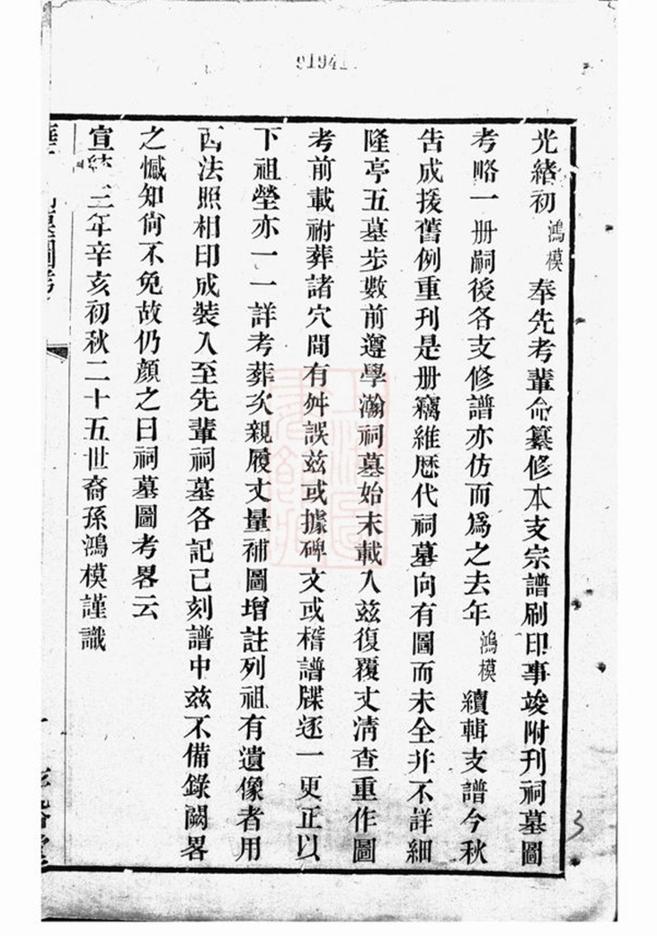 91941
光緒初鴻模奉先考輩命纂修本支宗譜刷印事竣附刊祠墓圖
考略一册嗣後各支修譜亦仿而爲之去年鴻模續輯支譜今秋
告成援舊例重刊是册竊維歷代祠墓向有圖而未全幷不詳細
隆亭五墓步數前遵學瀚祠墓始末載入兹復覆丈清查重作圖
考前載祔葬諸穴間有舛誤兹或據碑文或稽譜牒逐一更正以
下祖塋亦一一詳考葬次親履丈量補圖增註列祖有遺像者用
西法照相印成裝入至先輩祠墓各記已刻譜中兹不備錄闕畧
之憾知尙不免故仍顏之曰祠墓圖考畧云
宣統三年辛亥初秋二十五世裔孫鴻模謹識
3